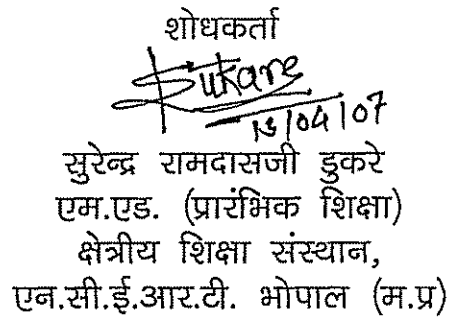 शोधकर्ता
Dukare
13/04/07
सुरेन्द्र रामदासजी डुकरे
एम.एड. (प्रारंभिक शिक्षा)
क्षेत्रीय शिक्षा संस्थान,
एन.सी.ई.आर.टी. भोपाल (म.प्र)